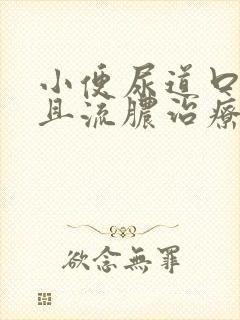 小便尿道口
且流膿治療
欲念無罪